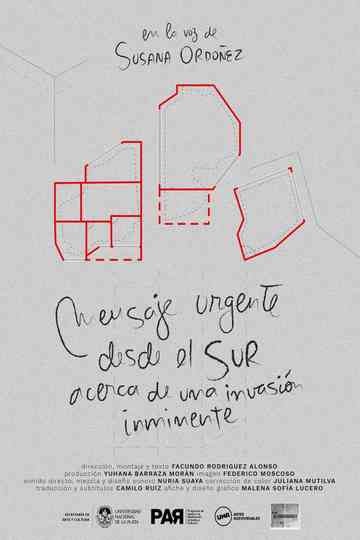 en la voz de
SUSANA ORDOÑEZ
Mensaje urgente
desde el SUR
acerca de una invasión
inminente
dirección, montaje y texto FACUNDO RODRIGUEZ ALONSO
producción YUHANA BARRAZA MORÁN imagen FEDERICO MOSCOSO
sonido directo, mezcla y diseño sonoro NURIA SUAYA corrección de color JULIANA MUTILVA
traducción y subtítulos CAMILO RUIZ afiche y diseño gráfico MALENA SOFÍA LUCERO
SECRETARÍA DE
ARTE Y CULTURA
UNIVERSIDAD
NACIONAL
DE LA PLATA
PAR
ARTES
AUDIOVISUALES